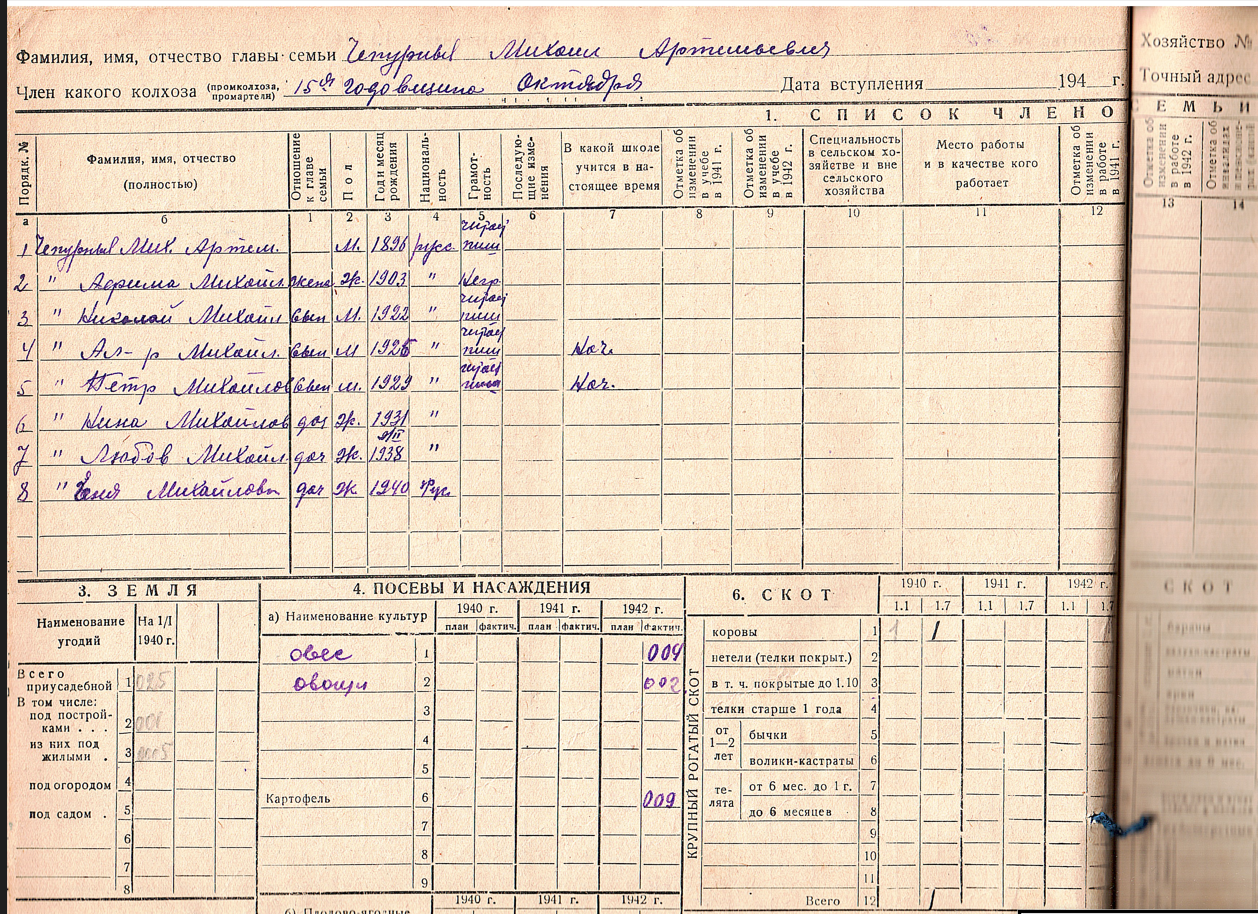 Фамилия, имя, отчество главы семьи Чепурный Михаил Артемьевич
Член какого колхоза (промколхоза, промартели) 15ая Годовщина Октября Дата вступления 194 г.
Хозяйство №
Точный адрес
1. СПИСОК ЧЛЕНО
СЕМЬИ
Порядк. № Фамилия, имя, отчество (полностью) Отношение к главе семьи Пол Год и месяц рождения Националь-ность Грамот-ность Последую-щие изме-нения В какой школе учится в на-стоящее время Отметка об изменении в учебе в 1941 г. Отметка об изменении в учебе в 1942 г. Специальность в сельском хо-зяйстве и вне сельского хозяйства Место работы и в качестве кого работает Отметка об изменении в работе в 1941 г. Отметка об изменении в работе в 1942 г. Отметка об
а б 1 2 3 4 5 6 7 8 9 10 11 12 13 14
1 Чепурный Мих. Артем. М. 1896 русс. читает пиш
2 " Михайл. жена Ж. 1903 " Негр.
3 " Николай Михайл сын М. 1922 " читает пиш
4 " Ал-р Михайл. сын М 1926 " читает пиш Нач.
5 " Петр Михайлов сын м. 1929 " читает Нач.
6 " Нина Михайлов доч Ж. 1931 "
7 " Любов Михайл. доч Ж. 1938 "
8 " Михайловн доч Ж 1940 Рус.
3. ЗЕМЛЯ
Наименование угодий На 1/I 1940 г.
Всего приусадебной 1 025
В том числе:
под построй-ками . . . 2 001
из них под жилыми . 3 0005
под огородом 4
под садом . 5
6
7
8
4. ПОСЕВЫ И НАСАЖДЕНИЯ
а) Наименование культур 1940 г. 1941 г. 1942 г.
план фактич. план фактич. план фактич.
овес 1 004
овощи 2 002
3
4
5
Картофель 6 009
7
8
9
1940 г. 1941 г. 1942 г.
б) Плодово-ягодные
6. СКОТ
1940 г. 1941 г. 1942 г.
1.1 1.7 1.1 1.7 1.1 1.7
КРУПНЫЙ РОГАТЫЙ СКОТ
коровы 1 1 1
нетели (телки покрыт.) 2
в т. ч. покрытые до 1.10 3
телки старше 1 года 4
от 1—2 лет бычки 5
волики-кастраты 6
те-лята от 6 мес. до 1 г. 7
до 6 месяцев 8
9
10
11
Всего 12 1
СКОТ
бараны